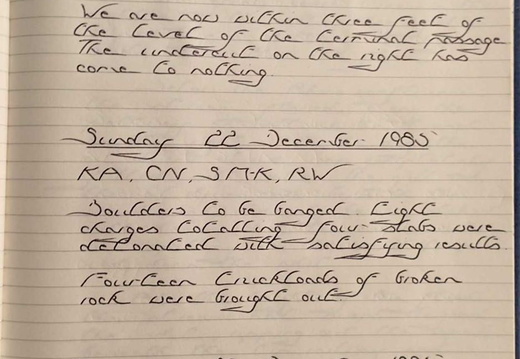 We are now within three feet of
the level of the terminal passage
The undercut on the right has
come to nothing.
Sunday 22 December 1985
KA, CN, SM-K, RW
Boulders to be banged. Eight
charges totalling four slabs were
detonated with satisfying results.
Fourteen truckloads of broken
rock were brought out.